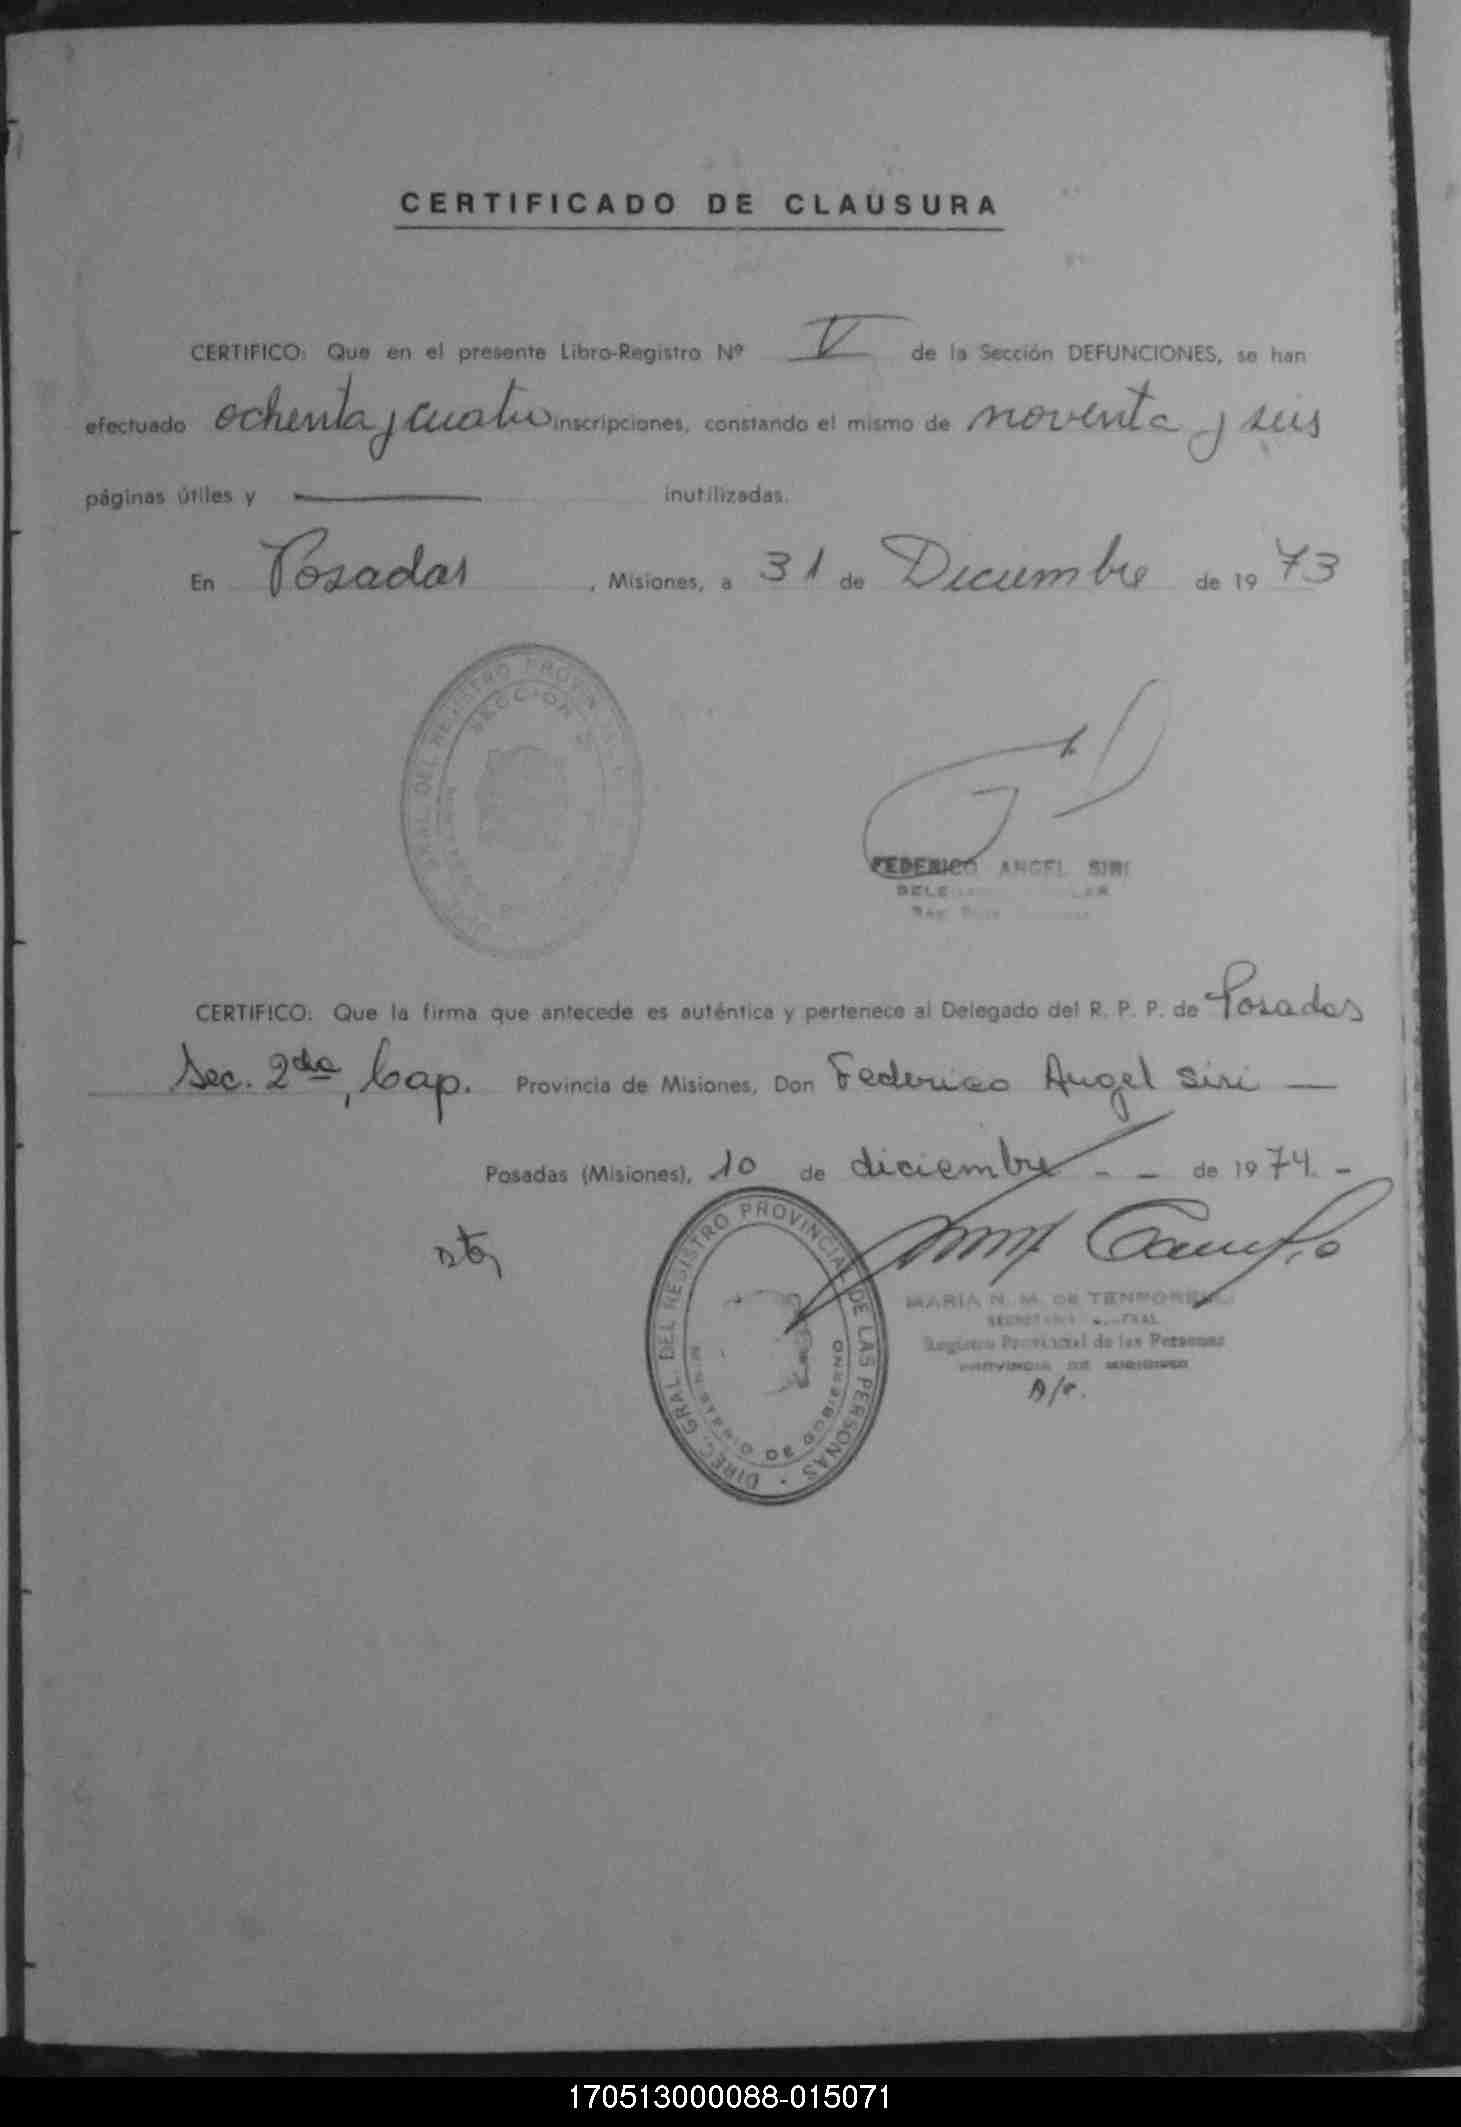 CERTIFICADO DE CLAUSURA
CERTIFICO: Que en el presente Libro-Registro Nº V de la Sección DEFUNCIONES, se han
efectuado ochenta y cuatro inscripciones, constando el mismo de noventa y seis
páginas útiles y ——— inutilizadas.
En Posadas, Misiones, a 31 de Diciembre de 1973
FEDERICO ANGEL SIRI
CERTIFICO: Que la firma que antecede es auténtica y pertenece al Delegado del R. P. P. de Posadas
Sec. 2da, Cap. Provincia de Misiones, Don Federico Angel Siri —
Posadas (Misiones), 10 de diciembre - - de 1974. -
DIREC. GRAL. DEL REGISTRO PROVINCIAL DE LAS PERSONAS
MINISTERIO DE GOBIERNO
MARIA N. M. DE TEMPORELLI
Registro Provincial de las Personas
PROVINCIA DE MISIONES
170513000088-015071